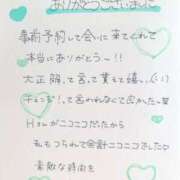 ありがとうございました
事前予約して会いに来てくれて
本当にありがとう〜!!
大正解って言って貰えて嬉しい
チェンジ!って言われなくて良かった笑
Hさんがニコニコだったから
私もつられて会計ニコニコでした
素敵な時間を